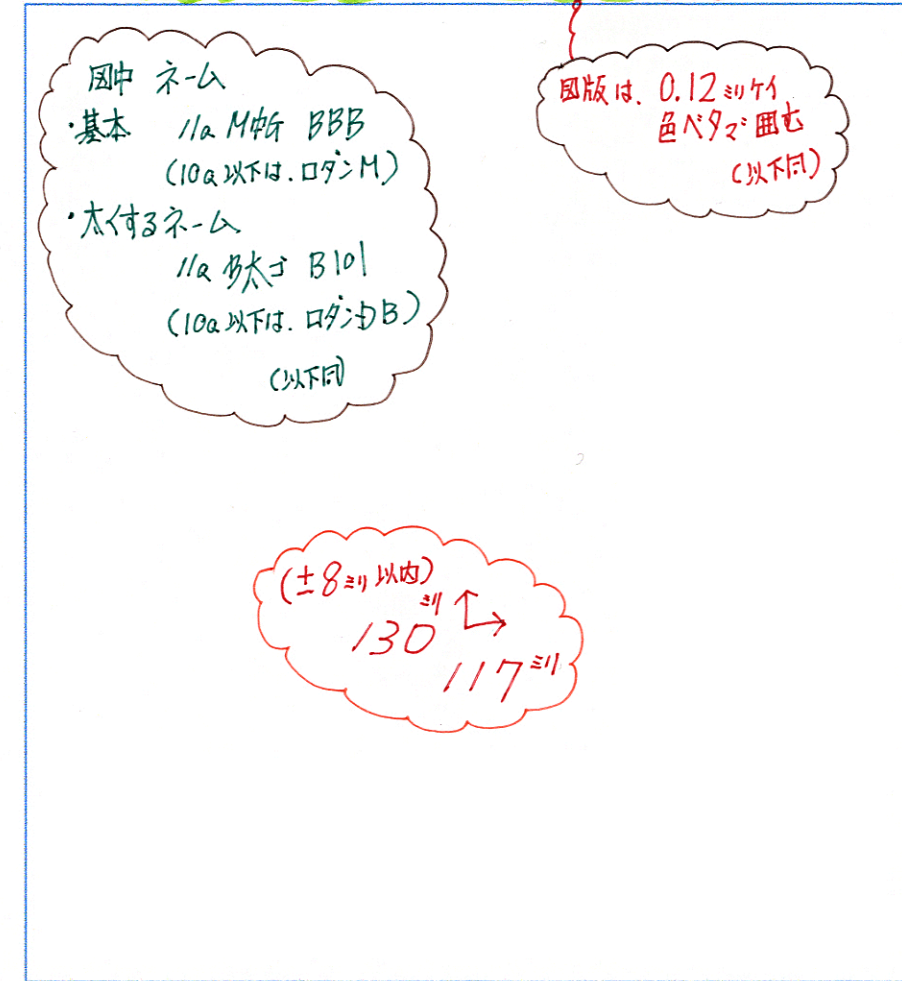 図中 ネーム
・基本 11a M中ゴ BBB
(10a以下は、ロダンM)
・太くするネーム
11a B太ゴ B101
(10a以下は、ロダンDB)
(以下同)
図版は、0.12ミリケイ
色ベタで囲む
(以下同)
(±8ミリ以内)
130ミリ
117ミリ